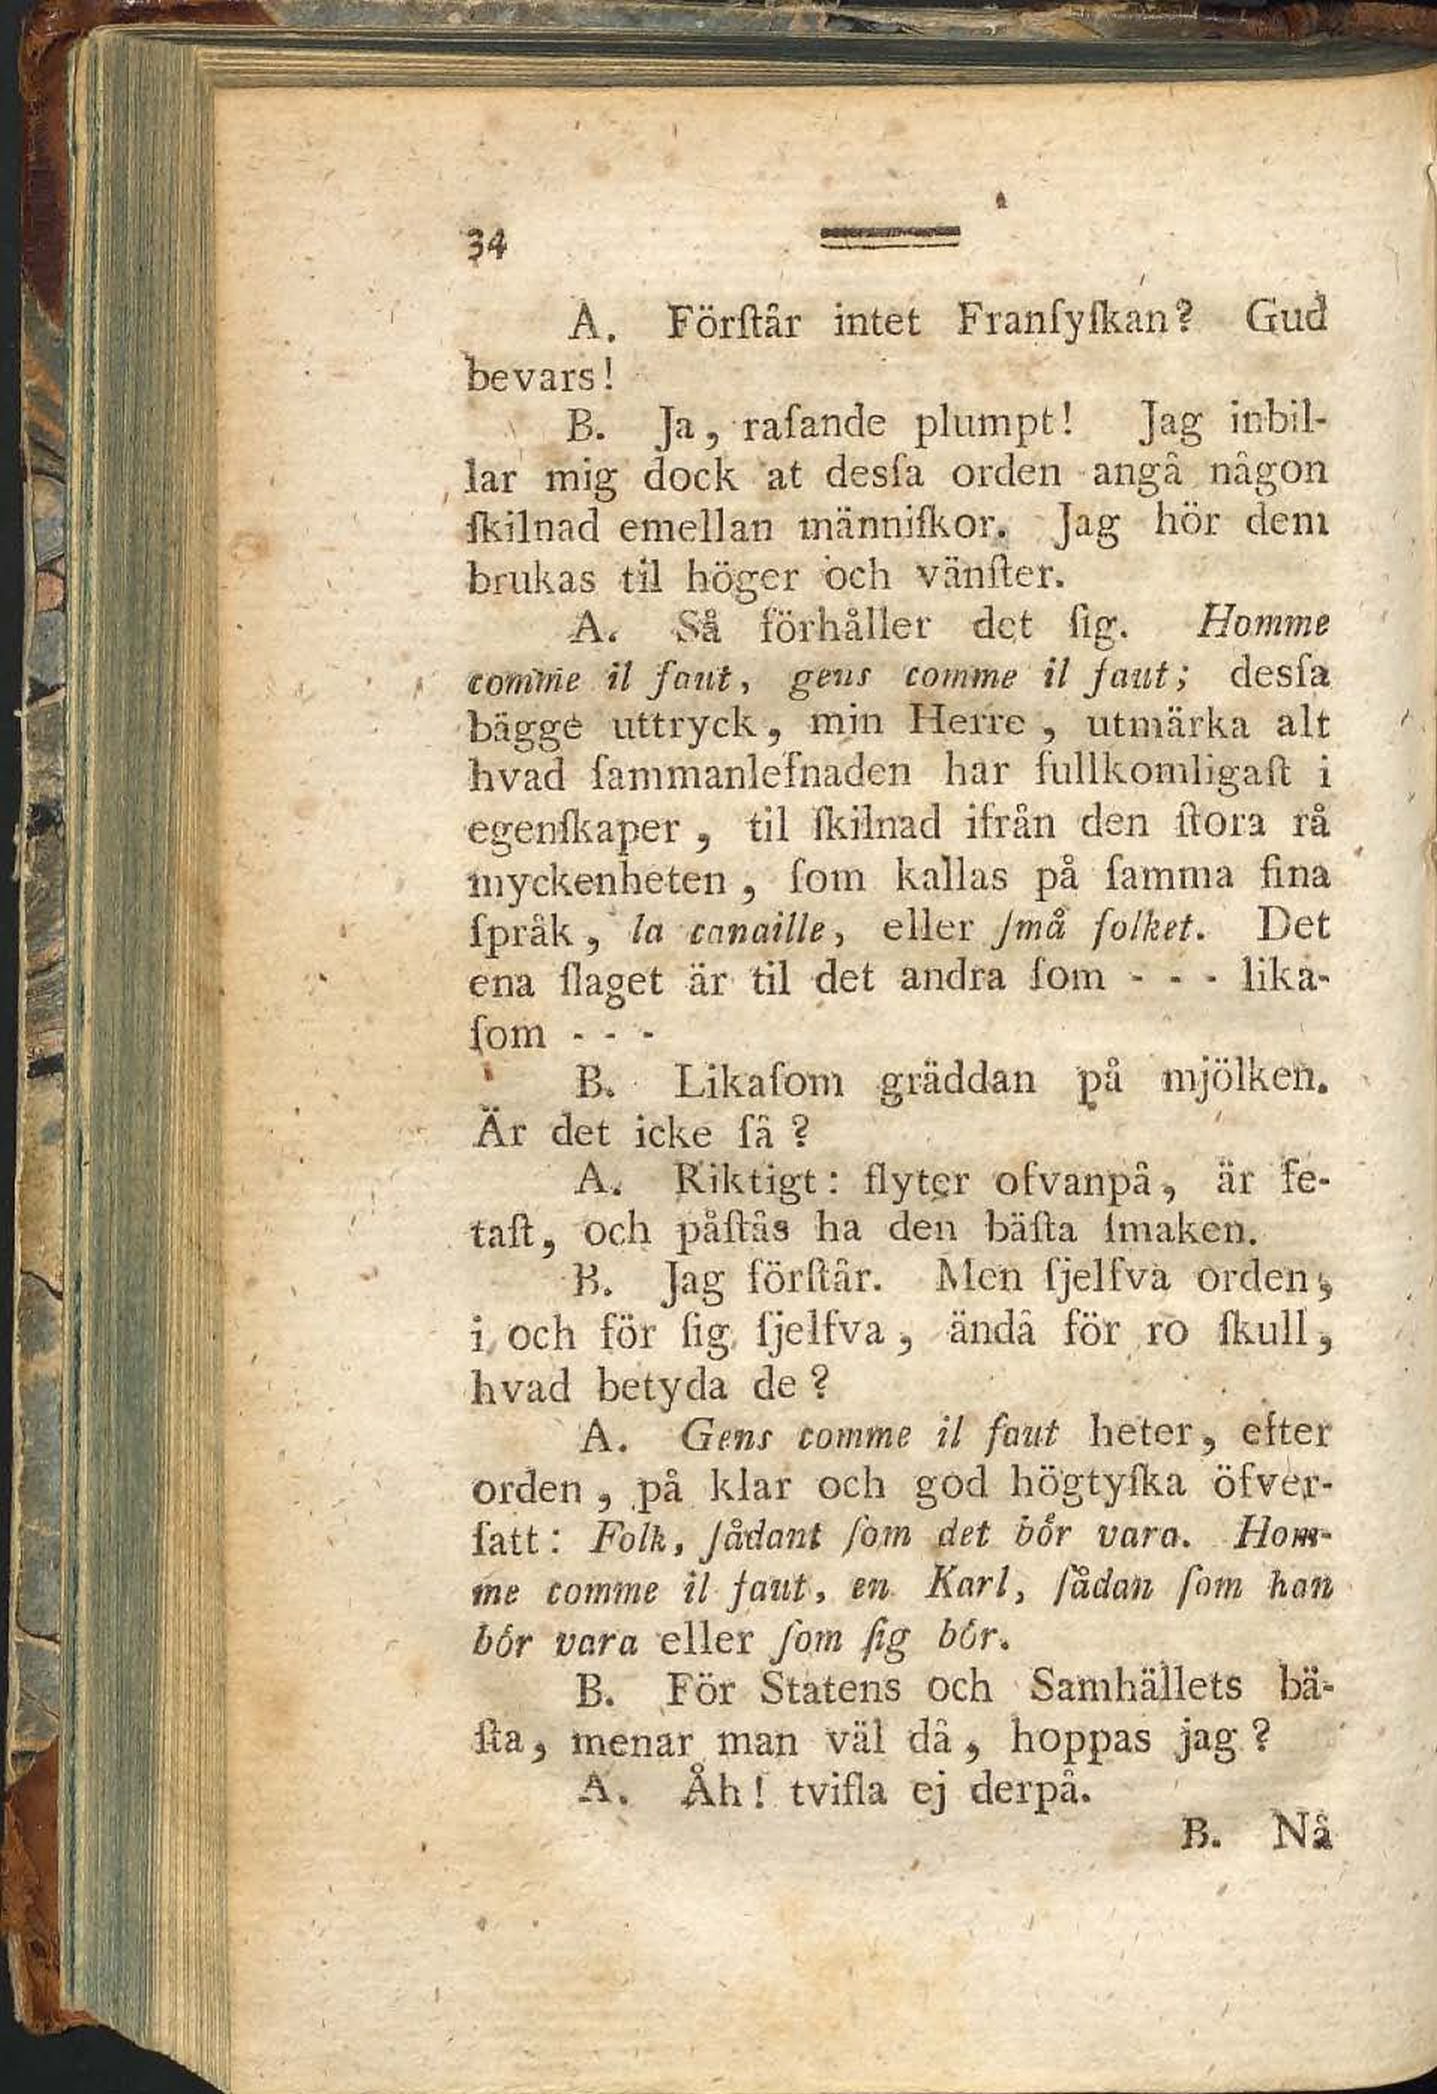 34
A. Förſtår intet Franſyſkan? Gud
bevars!
B. Ja, raſande plumpt! Jag inbil-
lar mig dock at desſa orden angå någon
ſkilnad emellan männiſkor. Jag hör dem
brukas til höger och vänſter.
A. Så förhåller det ſig. Homme
comme il faut, gens comme il faut; desſa
bägge uttryck, min Herre, utmärka alt
hvad ſammanlefnaden har fullkomligaſt i
egenſkaper, til ſkilnad ifrån den ſtora rå
myckenheten, ſom kallas på ſamma fina
ſpråk, la canaille, eller ſmå folket. Det
ena ſlaget är til det andra ſom - - - lika-
ſom - - -
B. Likaſom gräddan på mjölken.
Är det icke ſå?
A. Riktigt: flyter ofvanpå, är fe-
taſt, och påſtås ha den bäſta ſmaken.
B. Jag förſtår. Men ſjelfva orden,
i och för ſig ſjelfva, ändå för ro ſkull,
hvad betyda de?
A. Gens comme il faut heter, efter
orden, på klar och god högtyſka öfver-
ſatt: Folk, ſådant ſom det bör vara. Hom-
me comme il faut, en Karl, ſådan ſom han
bör vara eller ſom ſig bör.
B. För Statens och Samhällets bä-
ſta, menar man väl då, hoppas jag?
A. Åh! tvifla ej derpå.
B. Nå